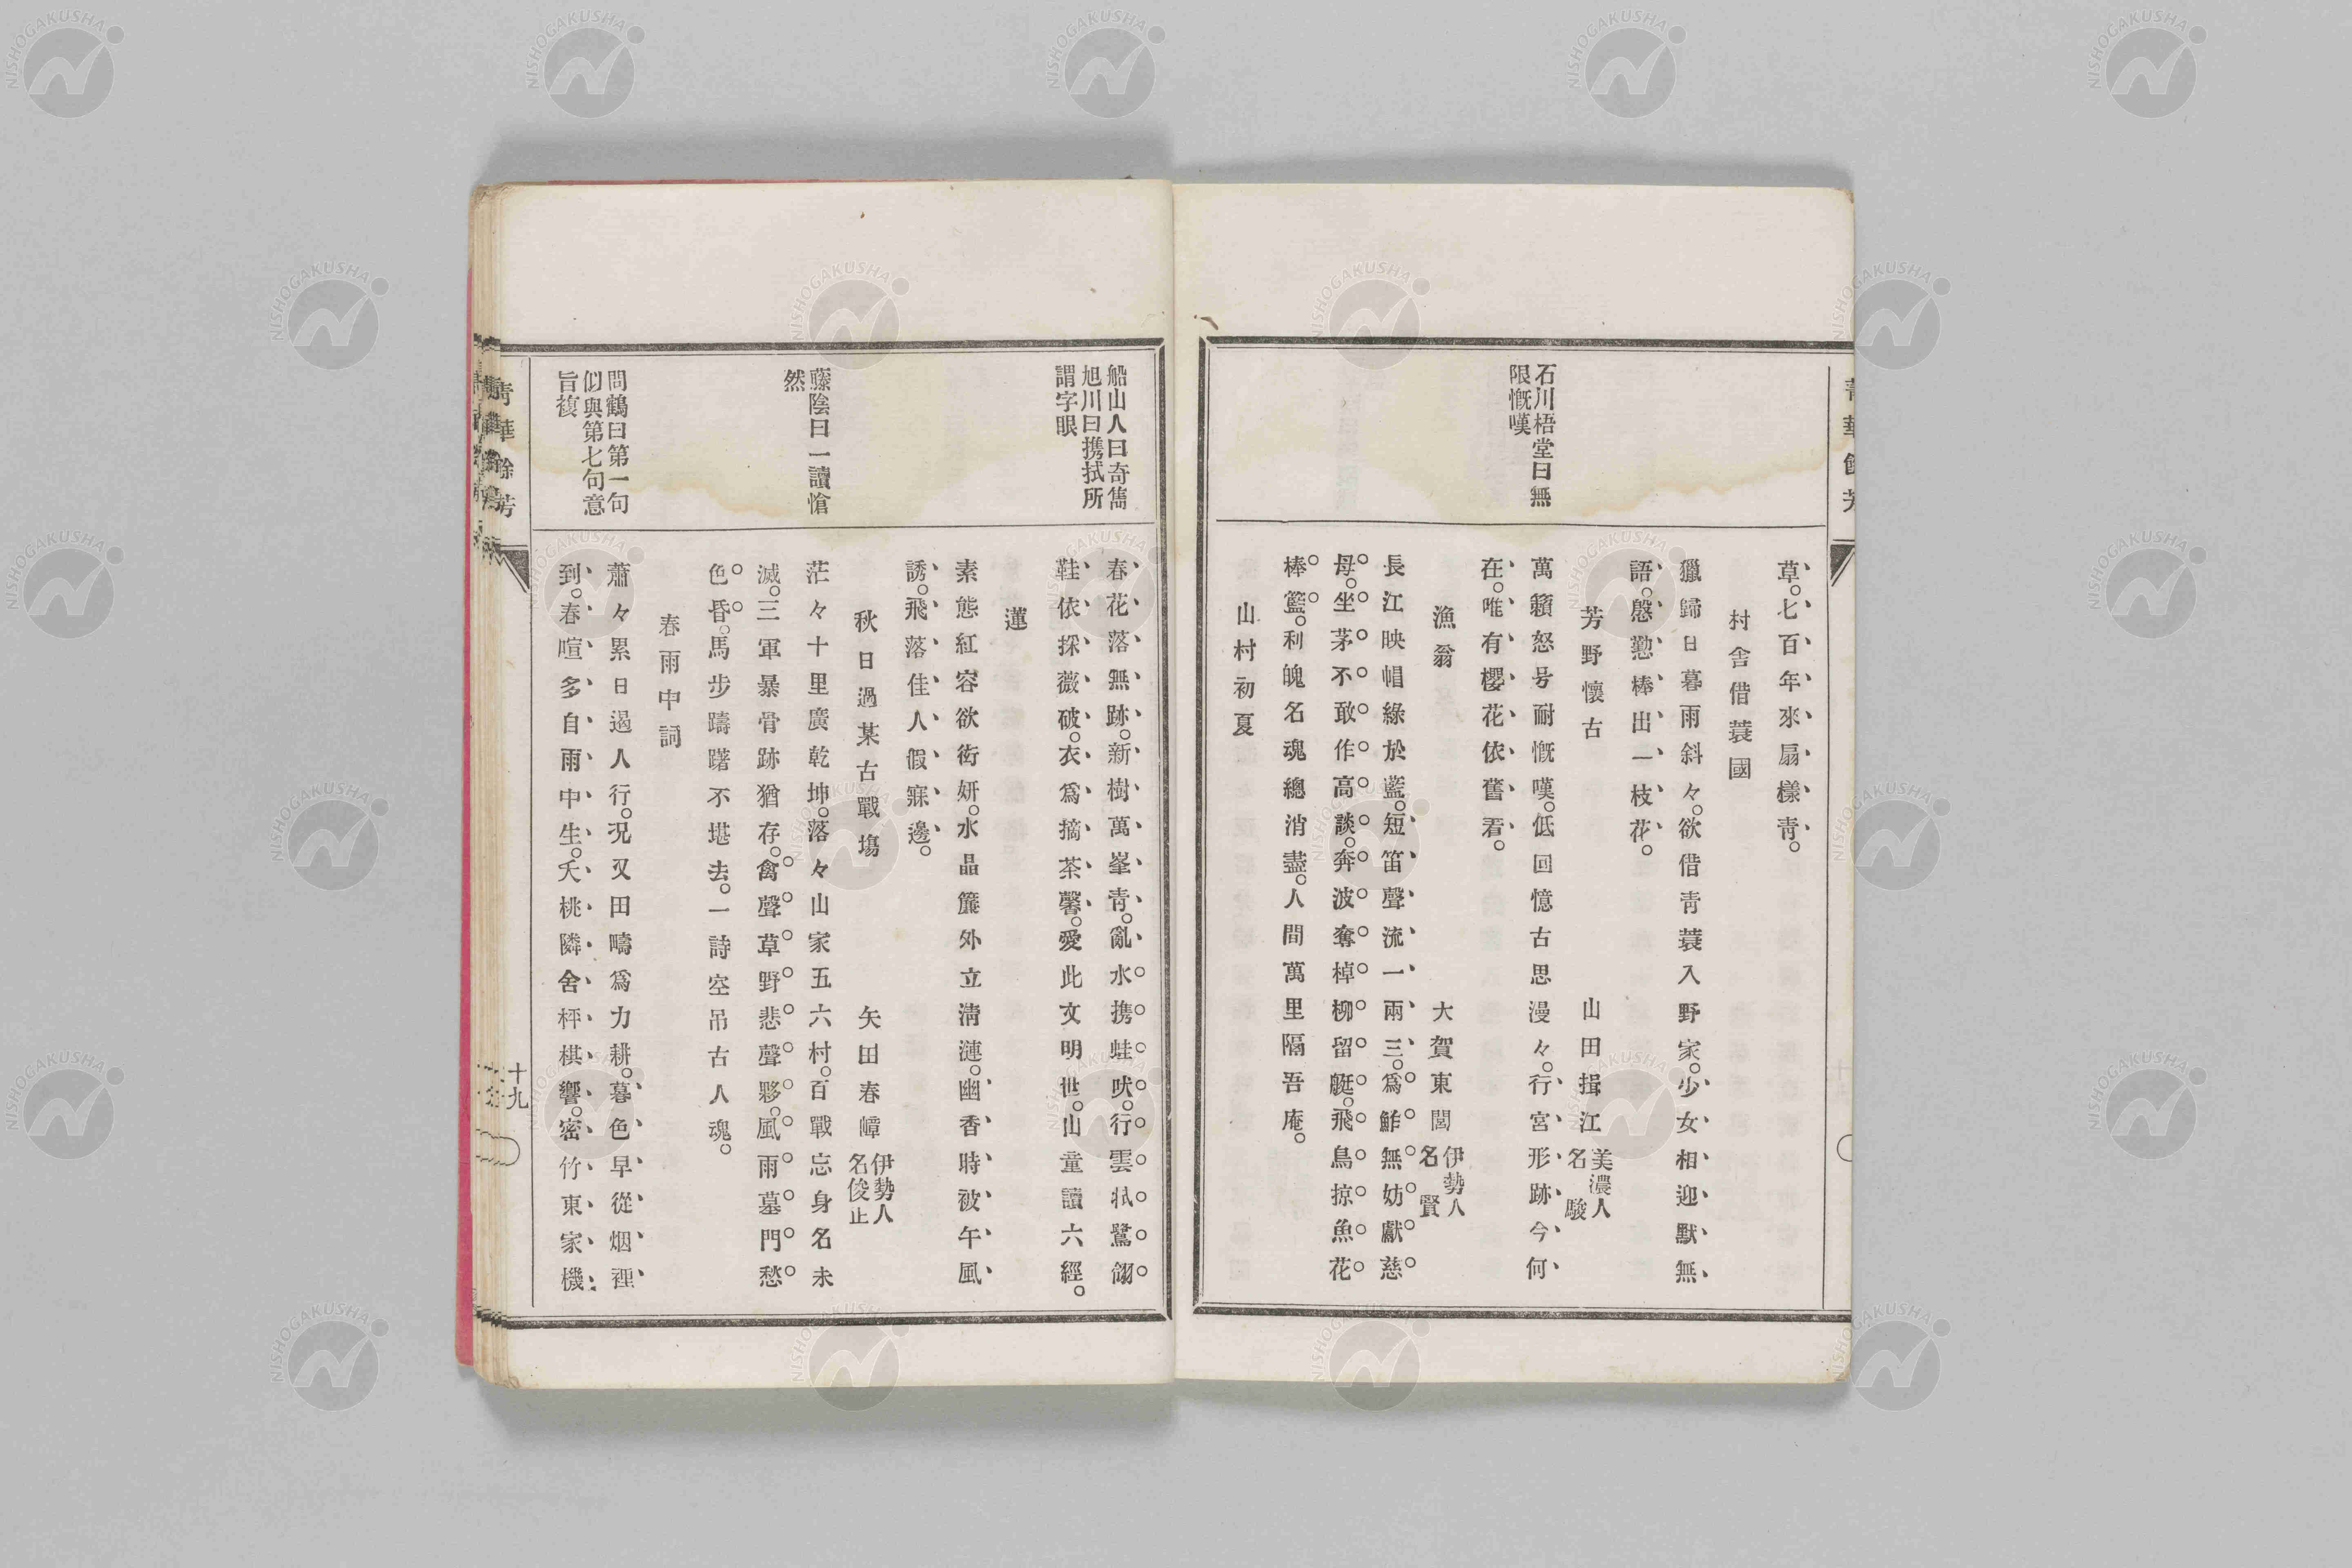 菁華餘芳
石川梧堂曰無
限慨嘆
草。七百年來扇樣靑。
村舍借蓑國
獵歸日暮雨斜々。欲借靑蓑入野家。少女相迎默無
語。慇懃棒出一枝花。
芳野懷古
山田揖江
美濃人
名 駿
萬籟怒号耐慨嘆。低回憶古思漫々。行宮形跡今何
在。唯有櫻花依舊看。
漁翁
大賀東閭
伊勢人
名 賢
長江映帽綠於藍。短笛聲流一兩三。爲鮓無妨獻慈
母。坐茅不敢作高談。奔波奪棹柳留艇。飛鳥掠魚花
棒籃。利魄名魂總消盡。人間萬里隔吾庵。
山村初夏
船山人曰奇雋
旭川曰携拭所
謂字眼
藤陰曰一讀愴
然
問鶴曰第一句
似與第七句意
旨複
春花落無跡。新樹萬峯靑。亂水携蛙吠。行雲拭鷺翎
鞋依採薇破。衣爲摘茶馨。愛此文明世。山童讀六經。
蓮
素態紅容欲衒妍。水晶簾外立淸漣。幽香時被午風
誘。飛落佳人假寐邊。
秋日過某古戰塲
矢田春嶂
伊勢人
名俊止
茫々十里廣乾坤。落々山家五六村。百戰忘身名未
滅。三軍暴骨跡猶存。禽聲草野悲聲夥。風雨墓門愁
色昏。馬步躊躇不堪去。一詩空吊古人魂。
春雨中詞
蕭々累日遏人行。況又田疇爲力耕。暮色早從烟裡
到。春喧多自雨中生。夭桃隣舍枰棋響。密竹東家機
菁華餘芳
十九